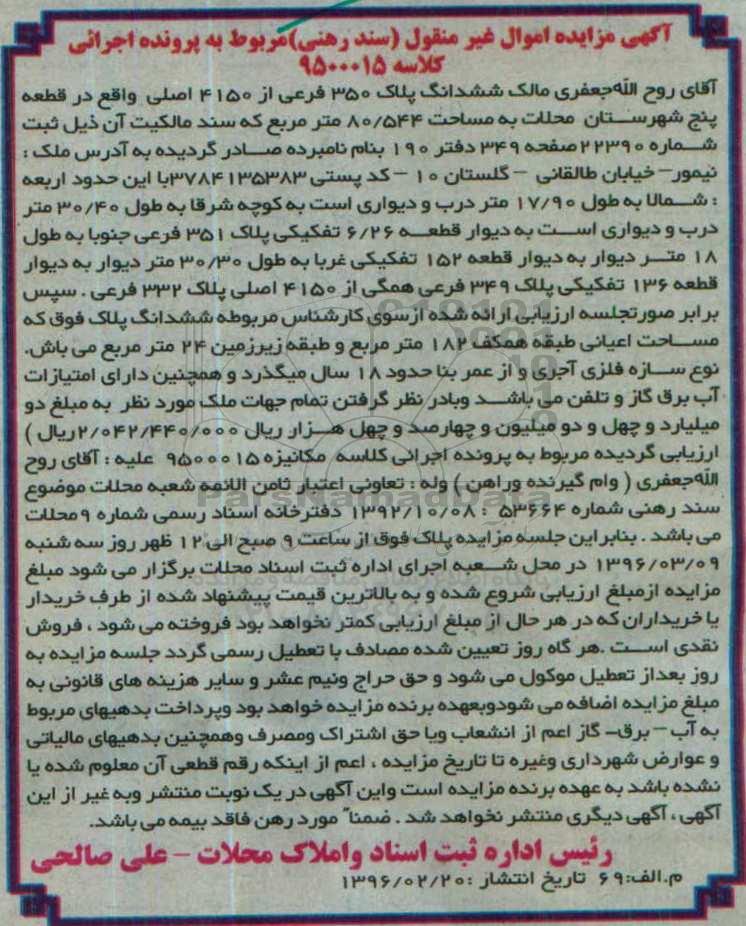 آگهی مزایده اموال غیر منقول (سند رهنی)مربوط به پرونده اجرائی
کلاسه ۹۵۰۰۰۱۵
آقای روح الله جعفری مالک ششدانگ پلاک ۳۵۰ فرعی از ۴۱۵۰ اصلی واقع در قطعه
پنج شهرستان محلات به مساحت ۸۰/۵۴۴ متر مربع که سند مالکیت آن ذیل ثبت
شماره ۲۲۳۹۰ صفحه ۳۴۹ دفتر ۱۹۰ بنام نامبرده صادر گردیده به آدرس ملک :
نیمور- خیابان طالقانی – گلستان ۱۰ – کد پستی ۳۷۸۴۱۳۵۳۸۳با این حدود اربعه
: شمالا به طول ۱۷/۹۰ متر درب و دیواری است به کوچه شرقا به طول ۳۰/۴۰ متر
درب و دیواری است به دیوار قطعه ۶/۲۶ تفکیکی پلاک ۳۵۱ فرعی جنوبا به طول
۱۸ متر دیوار به دیوار قطعه ۱۵۲ تفکیکی غربا به طول ۳۰/۳۰ متر دیوار به دیوار
قطعه ۱۳۶ تفکیکی پلاک ۳۴۹ فرعی همگی از ۴۱۵۰ اصلی پلاک ۳۳۲ فرعی . سپس
برابر صورتجلسه ارزیابی ارائه شده ازسوی کارشناس مربوطه ششدانگ پلاک فوق که
مساحت اعیانی طبقه همکف ۱۸۲ متر مربع و طبقه زیرزمین ۲۴ متر مربع می باش.
نوع سازه فلزی آجری و از عمر بنا حدود ۱۸ سال میگذرد و همچنین دارای امتیازات
آب برق گاز و تلفن می باشد وبادر نظر گرفتن تمام جهات ملک مورد نظر به مبلغ دو
میلیارد و چهل و دو میلیون و چهارصد و چهل هزار ریال ۲/۰۴۲/۴۴۰/۰۰۰ریال )
ارزیابی گردیده مربوط به پرونده اجرائی کلاسه مکانیزه ۹۵۰۰۰۱۵ علیه : آقای روح
الله جعفری ( وام گیرنده وراهن ) وله : تعاونی اعتبار ثامن الائمه شعبه محلات موضوع
سند رهنی شماره ۵۳۶۶۴ : ۱۳۹۲/۱۰/۰۸ دفترخانه اسناد رسمی شماره ۹محلات
می باشد . بنابراین جلسه مزایده پلاک فوق از ساعت ۹ صبح الی ۱۲ ظهر روز سه شنبه
۱۳۹۶/۰۳/۰۹ در محل شعبه اجرای اداره ثبت اسناد محلات برگزار می شود مبلغ
مزایده ازمبلغ ارزیابی شروع شده و به بالاترین قیمت پیشنهاد شده از طرف خریدار
یا خریداران که در هر حال از مبلغ ارزیابی کمتر نخواهد بود فروخته می شود ، فروش
نقدی است .هر گاه روز تعیین شده مصادف با تعطیل رسمی گردد جلسه مزایده به
روز بعداز تعطیل موکول می شود و حق حراج ونیم عشر و سایر هزینه های قانونی به
مبلغ مزایده اضافه می شودوبعهده برنده مزایده خواهد بود وپرداخت بدهیهای مربوط
به آب – برق- گاز اعم از انشعاب ویا حق اشتراک ومصرف وهمچنین بدهیهای مالیاتی
و عوارض شهرداری وغیره تا تاریخ مزایده ، اعم از اینکه رقم قطعی آن معلوم شده یا
نشده باشد به عهده برنده مزایده است واین آگهی در یک نوبت منتشر وبه غیر از این
آگهی ، آگهی دیگری منتشر نخواهد شد . ضمناً مورد رهن فاقد بیمه می باشد.
رئیس اداره ثبت اسناد واملاک محلات – علی صالحی
م.الف:۶۹ تاریخ انتشار :۱۳۹۶/۰۲/۲۰
ParsNamadData